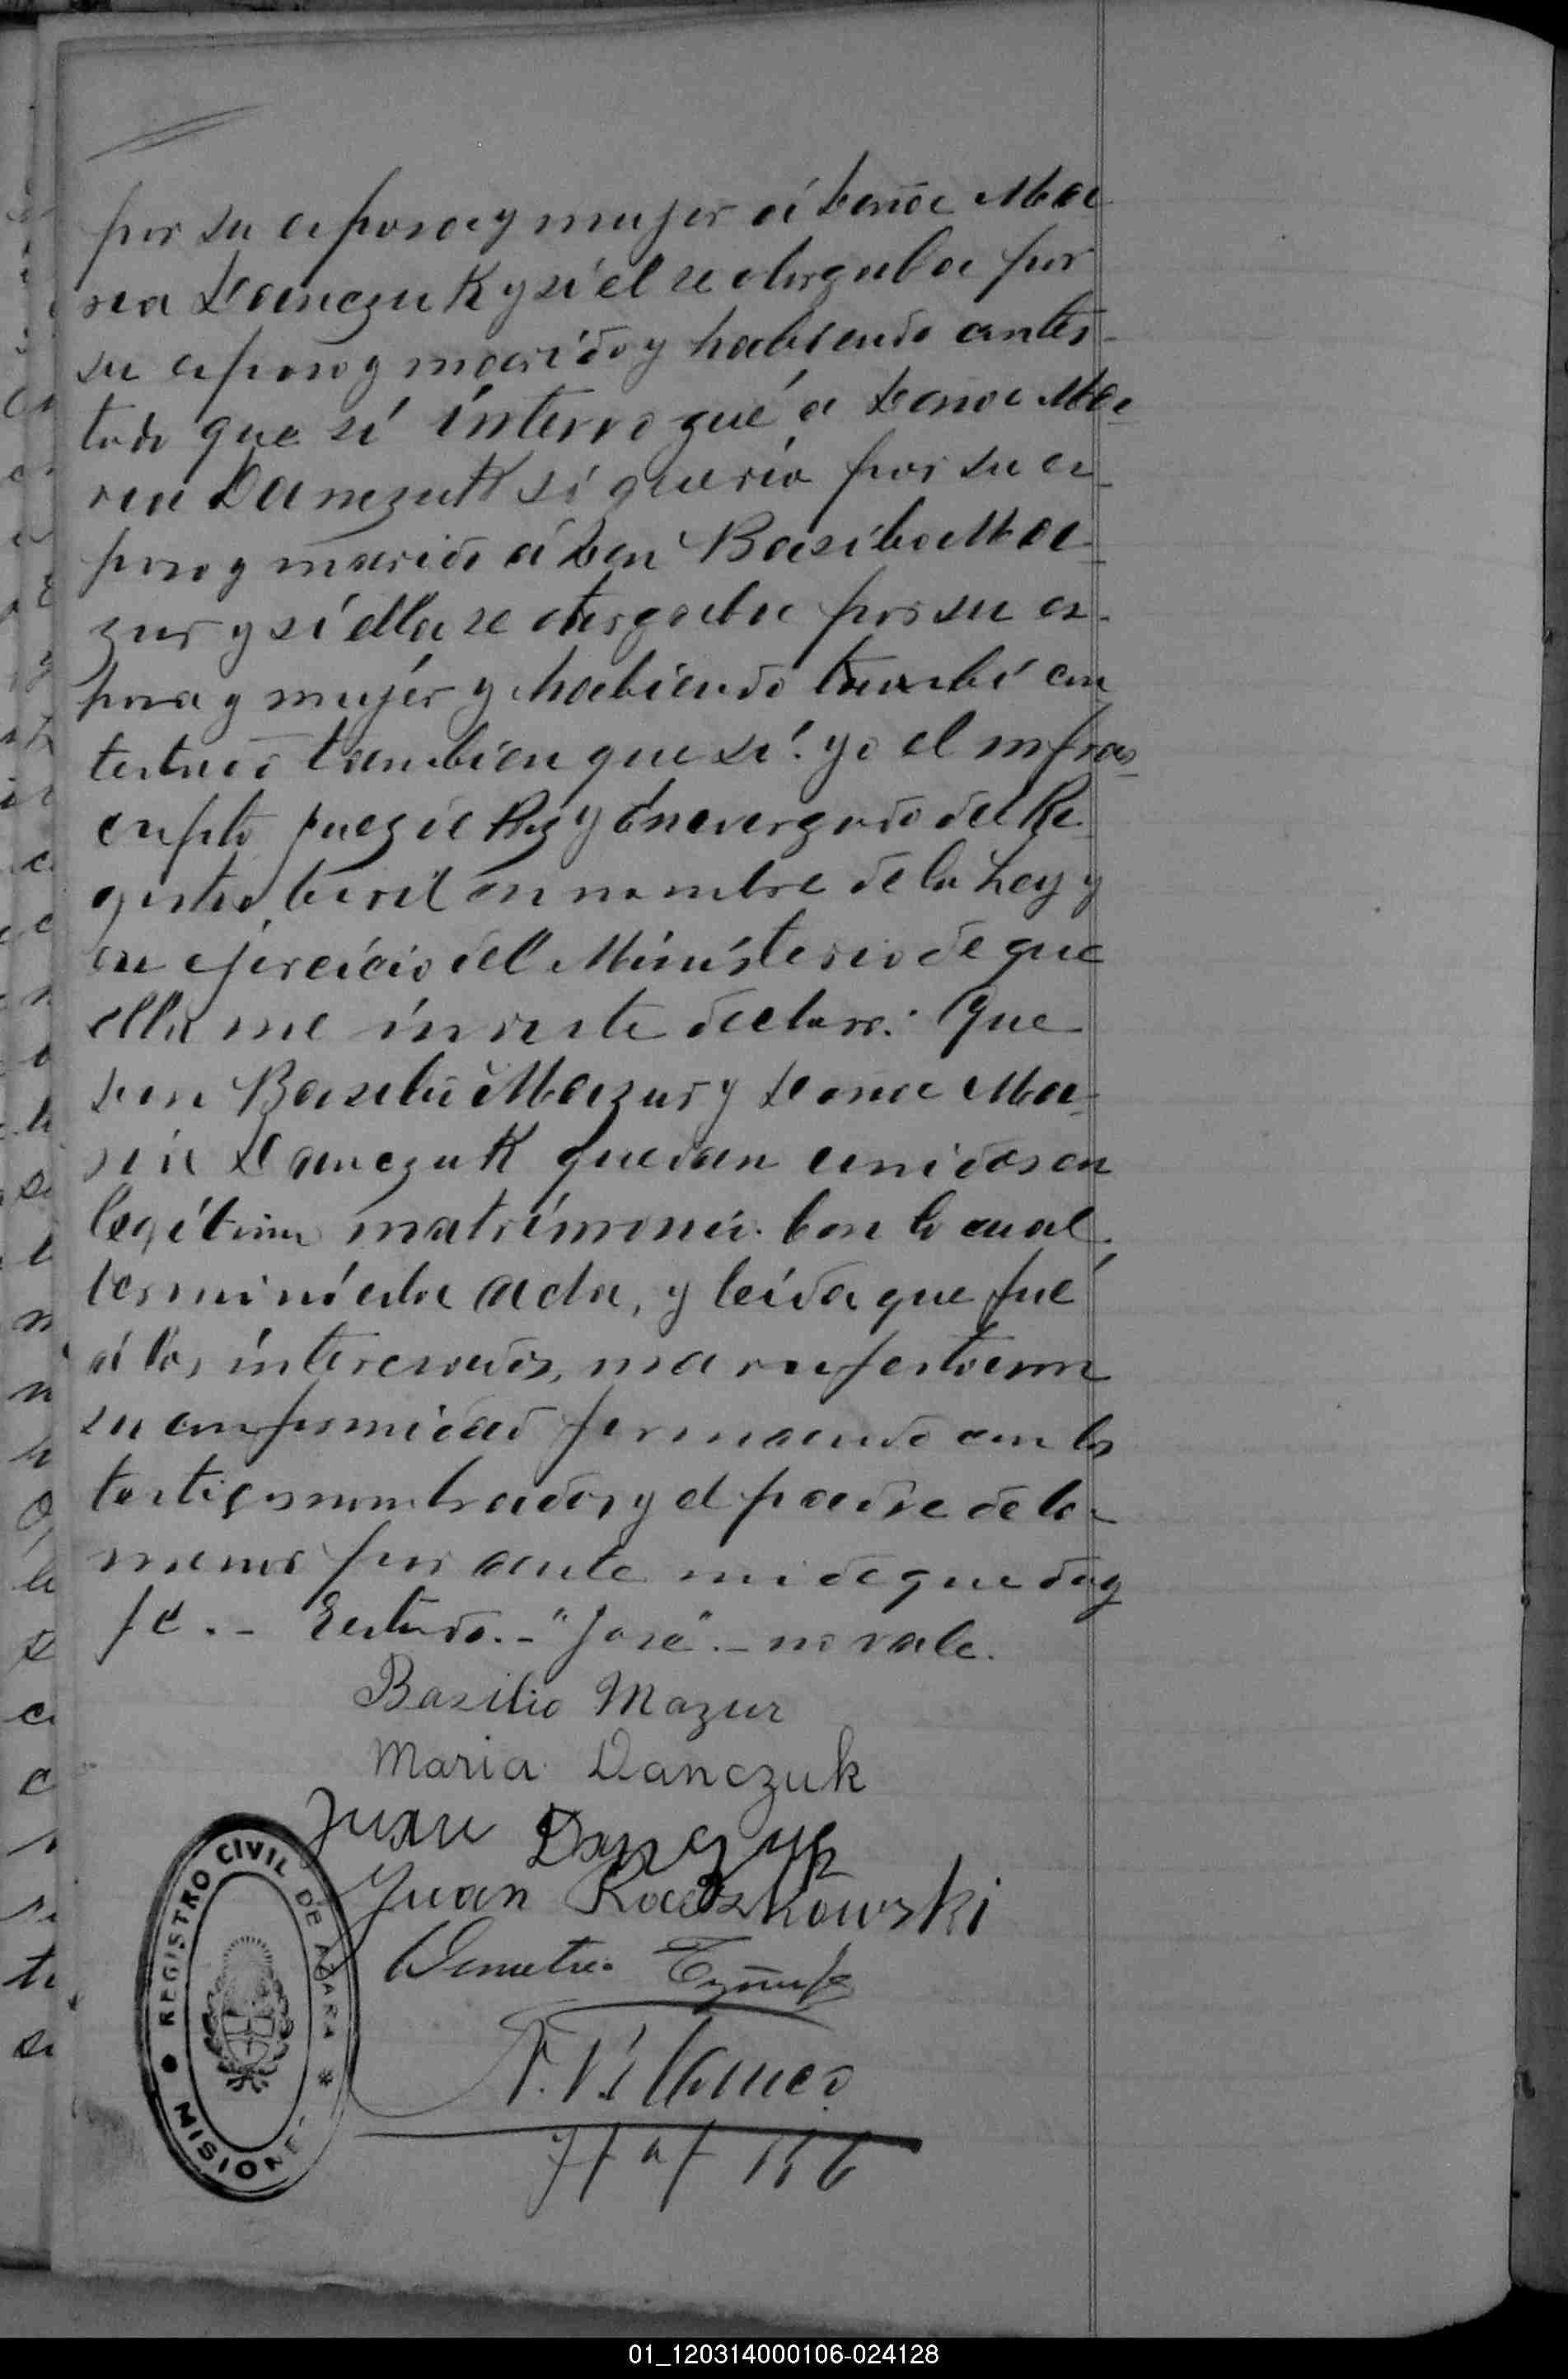 por su esposa y mujer á Doña Ma-
ria Danczuk y si él se otorgaba por
su esposo y marido y habiendo contes-
tado que sí interrogué á Doña Ma-
ria Danczuk si queria por su es-
poso y marido á Don Basilio Ma-
zur y si ella se otorgaba por su es-
posa y mujer y habiendo con
testado tambien que sí: yo el infras-
cripto Juez de Paz y Encargado del Re-
gistro Civil en nombre de la Ley y
en ejercicio del Ministerio de que
ella me inviste declaro: Que
Don Basilio Mazur y Doña Ma-
ria Danczuk quedan unidos en
legítimo matrimonio. Con lo cual,
terminó esta acta, y leída que fué
á los interesados, manifestaron
su conformidad firmando con los
testigos nombrados y el padre de la
menor por ante mi de que doy
fé.- Testado.-"José".- no vale.
Basilio Mazur
Maria Danczuk
Juan Danczuk
Juan Raczkowski
Demetrio
REGISTRO CIVIL DE AZARA
MISIONES
01_120314000106-024128